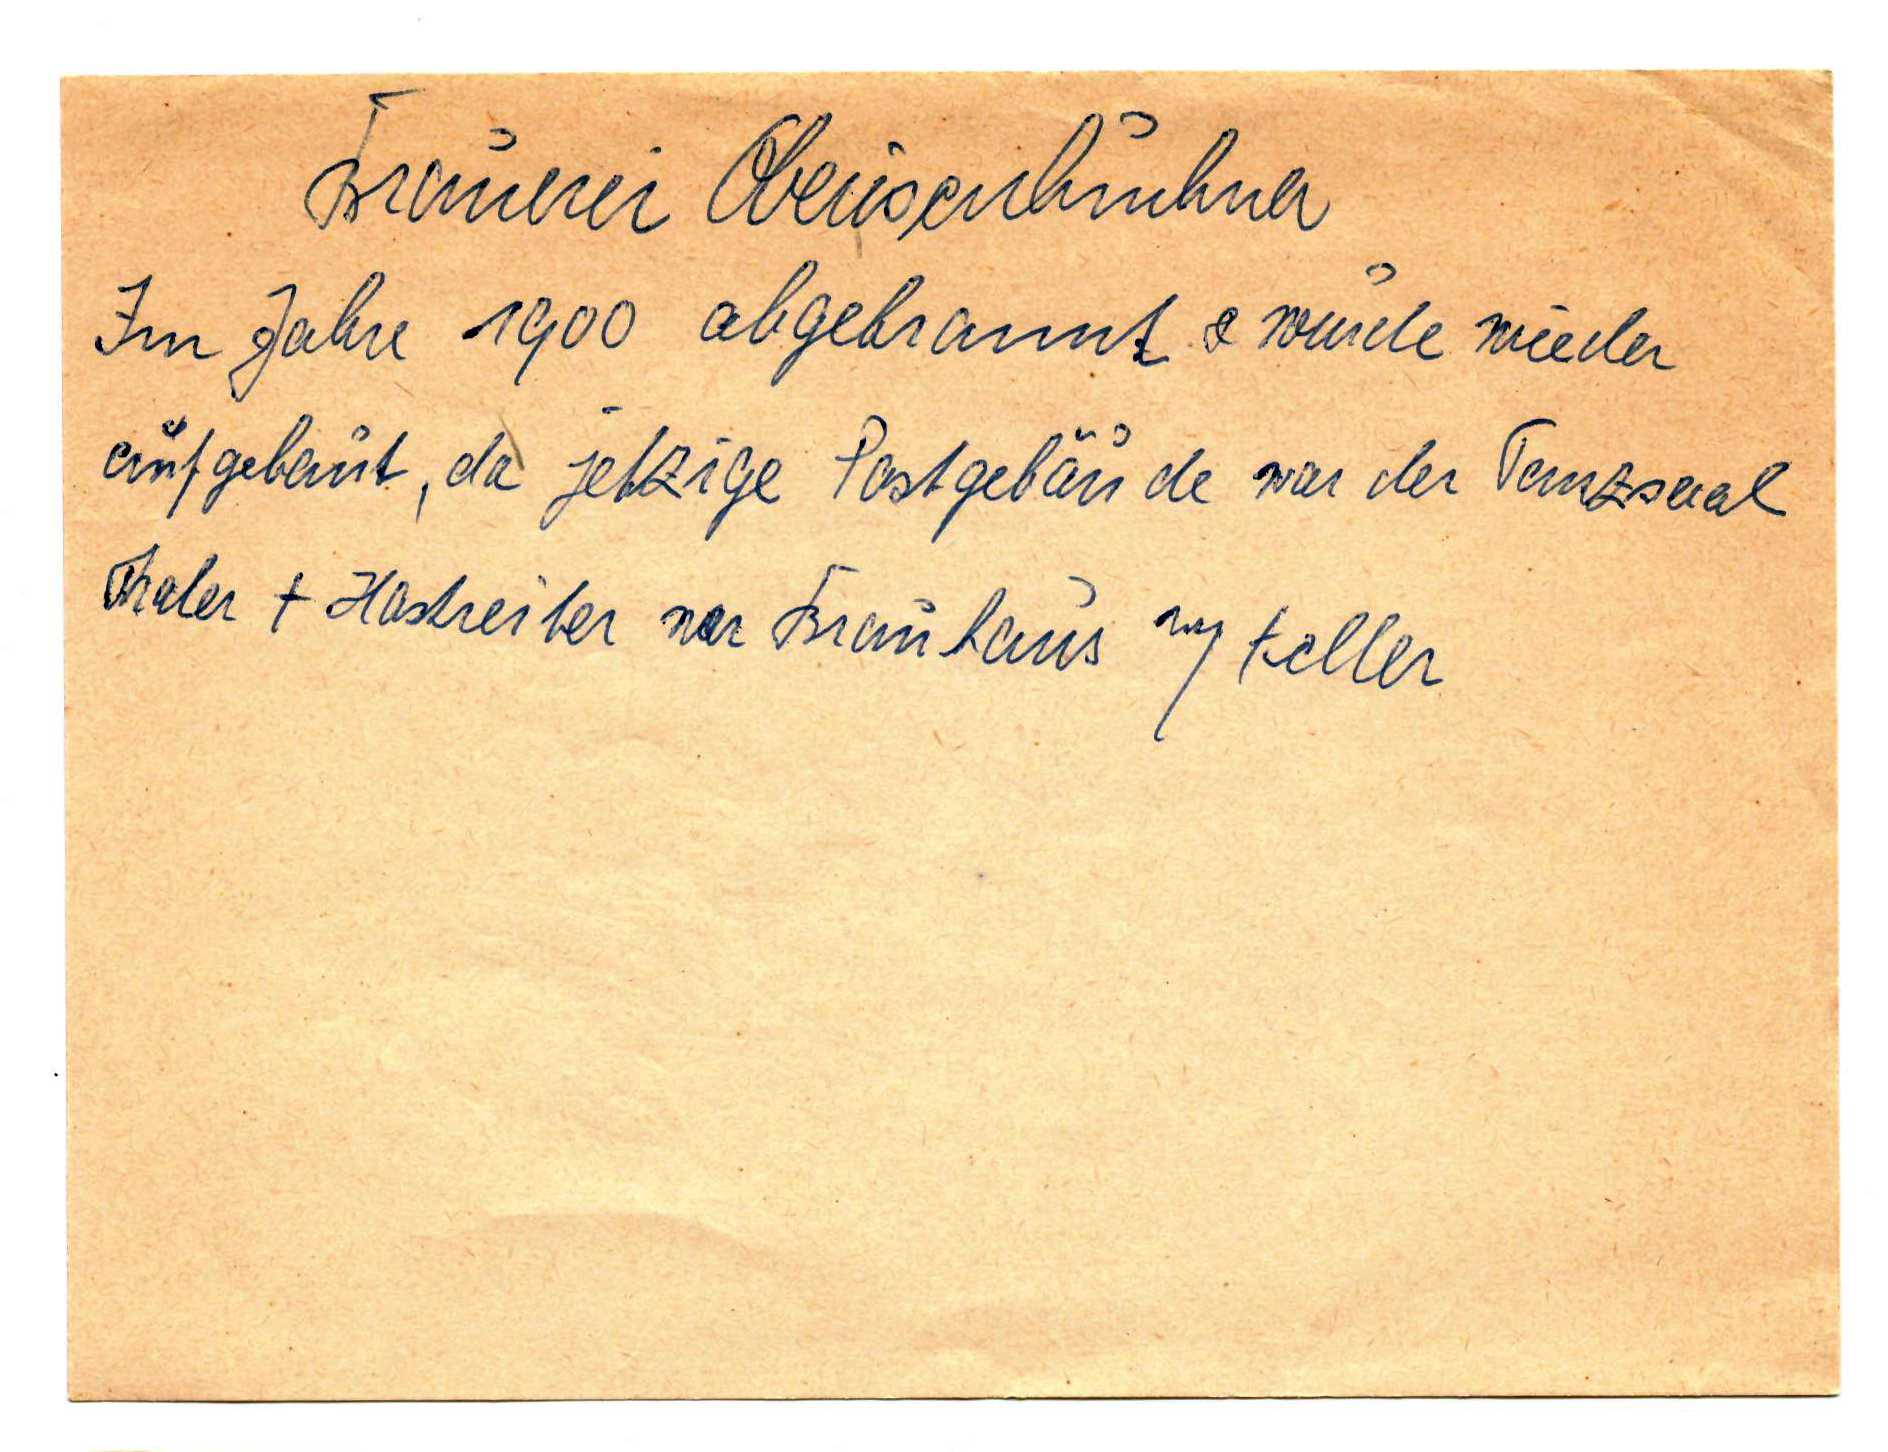 Brauerei
Im Jahre 1900 abgebrannt & wurde wieder
aufgebaut, da jetzige Postgebäude war der Tanzsaal
Thaler + Hastreiter war Brauhaus mit Keller